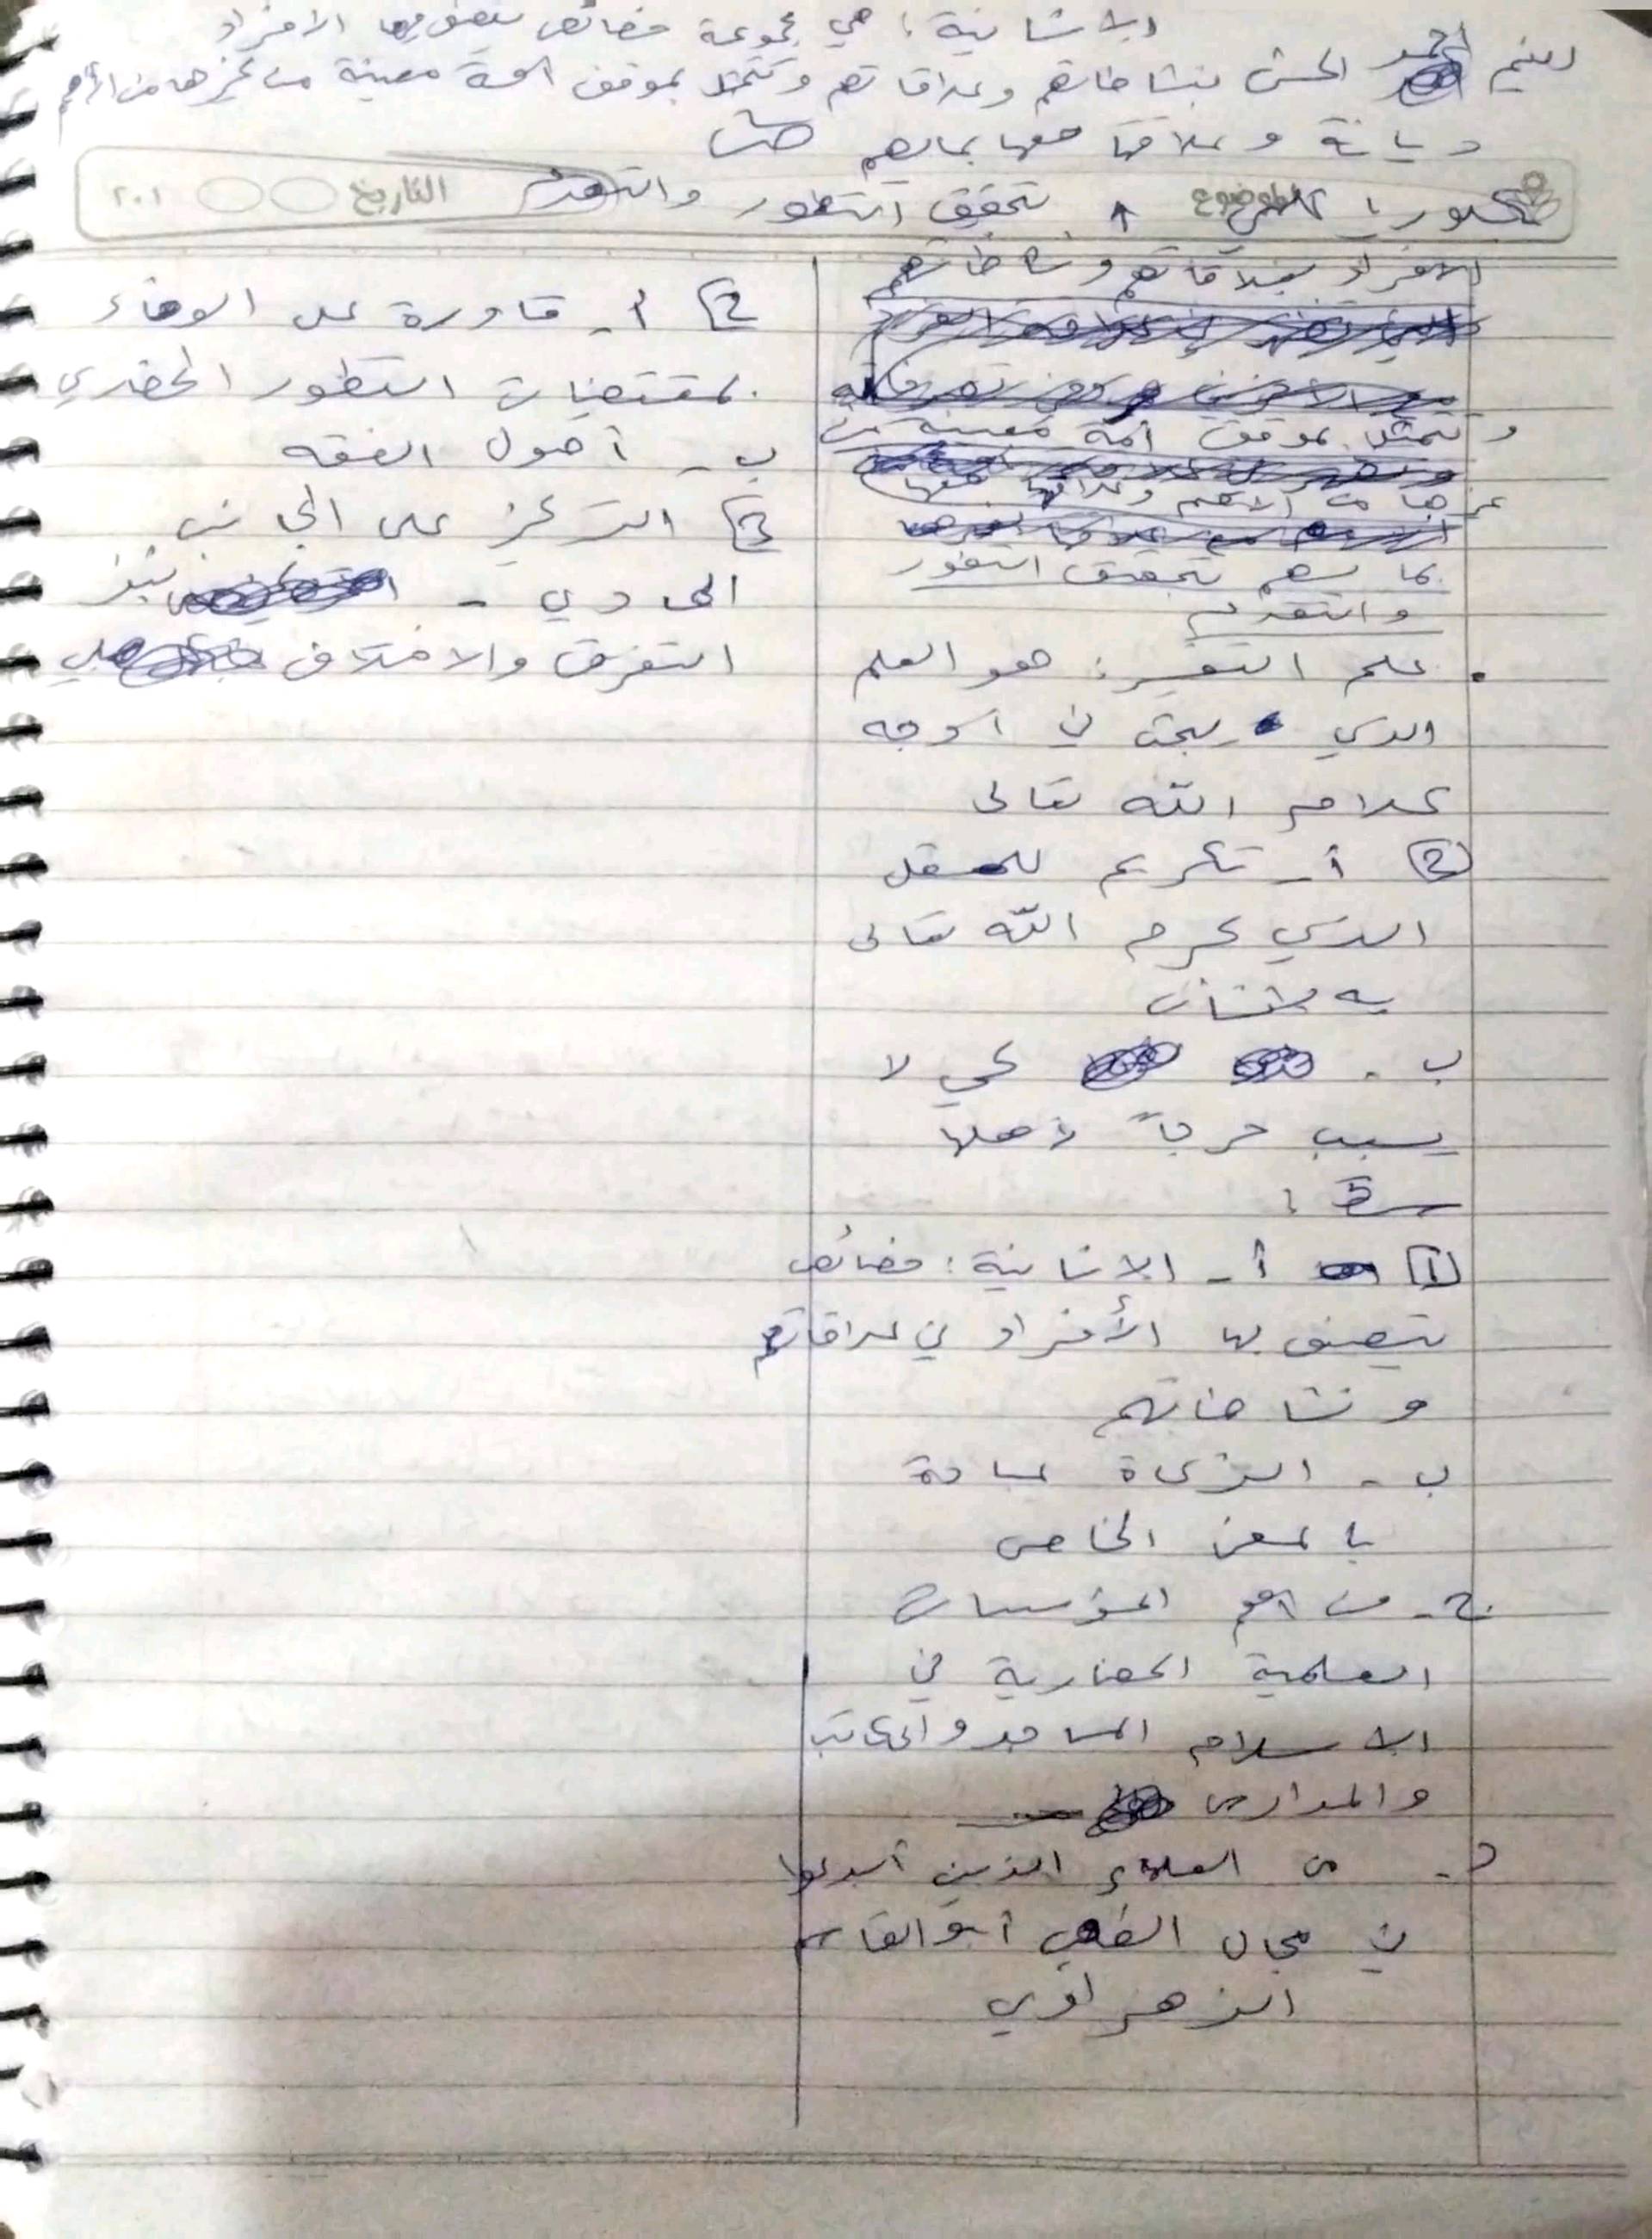 الانسانية : هي مجموعة خصائص يتصف بها الافراد
احمد بنشاطاتهم وعلاقاتهم وتتمثل بموقف امة معينة من غيرها من الأمم
وعلاقتها معها بما يسهم
الموضوع تحقيق التطور والتقدم التاريخ ٢٠١
الافراد بعلاقاتهم ونشاطاتهم
وتتمثل بموقف امة معينة من
غيرها من الامم وعلاقتها معها
بما يسهم بتحقيق التطور
والتقدم
• علم التفسير : هو العلم
الذي يبحث في اوجه
كلام الله تعالى
2 أ - تكريم للعقل
الذي كرم الله تعالى
به الانسان
ب - لكي لا
يسبب حرجاً لأهلها
س5 :
1 أ - الانسانية : خصائص
يتصف بها الأفراد في علاقاتهم
ونشاطاتهم
ب - الزكاة عبادة
بالمعنى الخاص
ج - من اهم المؤسسات
العلمية الحضارية في
الاسلام المساجد والمكاتب
والمدارس
د - من العلماء الذين أبدعوا
في مجال الطب أبو القاسم
الزهراوي
2 أ - قادرة على الوفاء
بمقتضيات التطور الحضري
ب - أصول الفقه
3 التركيز على الجانب
المادي - نبذ
التفرق والاختلاف